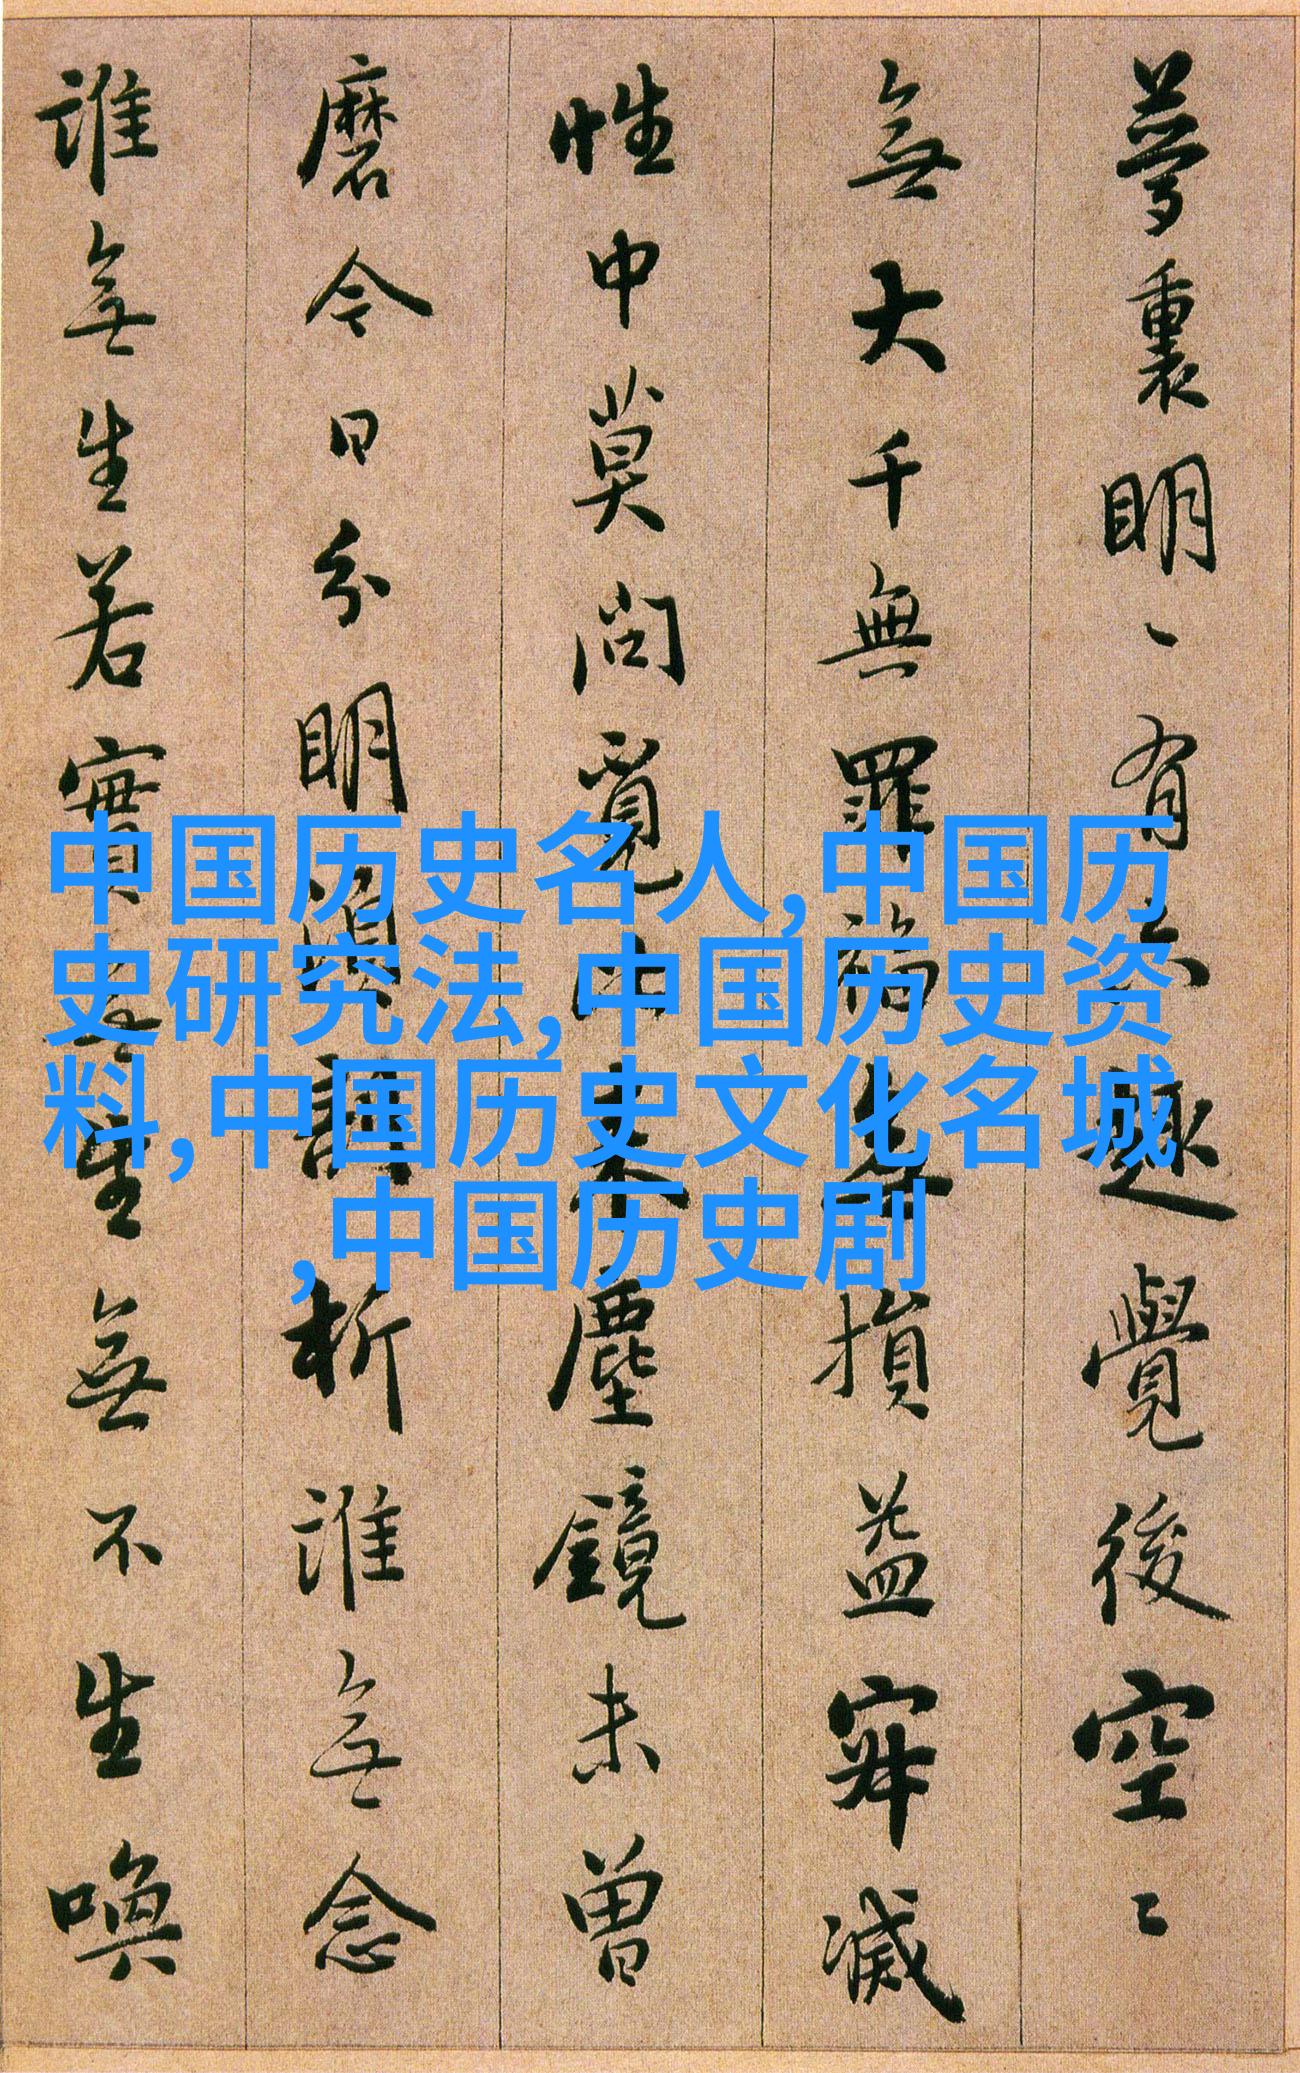 夢裏明〻有六趣覺後空〻
無大千無罪福無損益寂滅
性中莫問覓比來塵鏡未曾
磨今日分明須剖析誰無念
誰無生若實無生無不生喚
中国历史名人,中国历
史研究法,中国历史资
料,中国历史文化名城
,中国历史剧